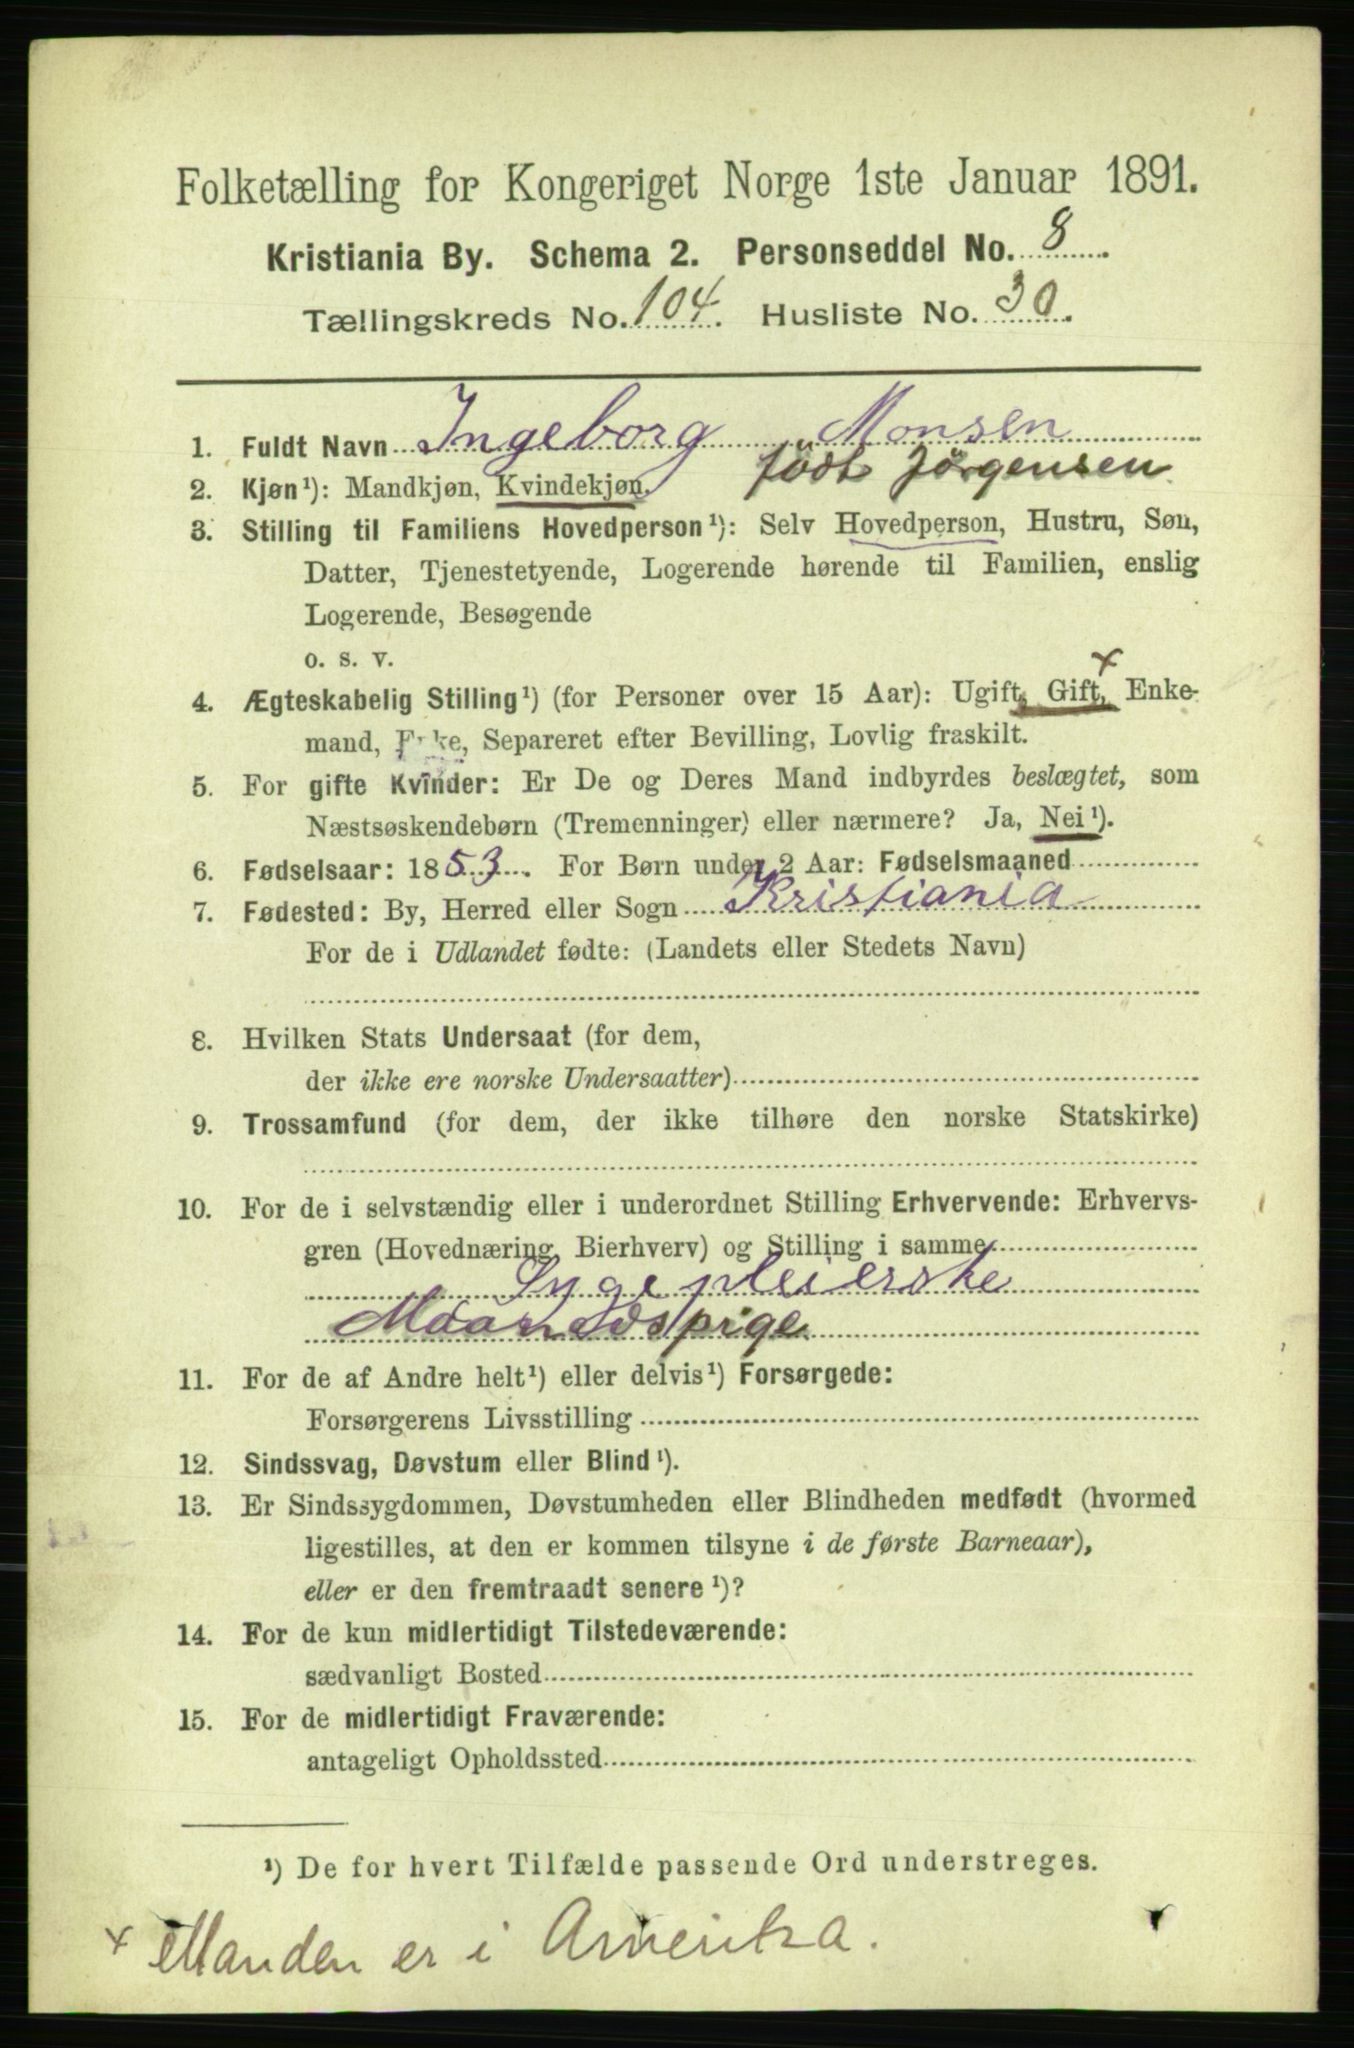 Folketælling for Kongeriget Norge 1ste Januar 1891.
Kristiania By. Schema 2. Personseddel No. 8
Tællingskreds No. 104. Husliste No. 30.
1. Fuldt Navn Ingeborg Monsen
födt Jørgensen
2. Kjøn¹): Mandkjøn, Kvindekjøn.
3. Stilling til Familiens Hovedperson¹): Selv Hovedperson, Hustru, Søn,
Datter, Tjenestetyende, Logerende hørende til Familien, enslig
Logerende, Besøgende
o. s. v.
4. Ægteskabelig Stilling¹) (for Personer over 15 Aar): Ugift, Gift, × Enke-
mand, Enke, Separeret efter Bevilling, Lovlig fraskilt.
5. For gifte Kvinder: Er De og Deres Mand indbyrdes beslægtet, som
Næstsøskendebørn (Tremenninger) eller nærmere? Ja, Nei¹).
6. Fødselsaar: 1853. For Børn under 2 Aar: Fødselsmaaned
7. Fødested: By, Herred eller Sogn Kristiania
For de i Udlandet fødte: (Landets eller Stedets Navn)
8. Hvilken Stats Undersaat (for dem,
der ikke ere norske Undersaatter)
9. Trossamfund (for dem, der ikke tilhøre den norske Statskirke)
10. For de i selvstændig eller i underordnet Stilling Erhvervende: Erhvervs-
gren (Hovednæring, Bierhverv) og Stilling i samme
Sygepleierske
Maanedspige
11. For de af Andre helt¹) eller delvis¹) Forsørgede:
Forsørgerens Livsstilling
12. Sindssvag, Døvstum eller Blind¹).
13. Er Sindssygdommen, Døvstumheden eller Blindheden medfødt (hvormed
ligestilles, at den er kommen tilsyne i de første Barneaar),
eller er den fremtraadt senere¹)?
14. For de kun midlertidigt Tilstedeværende:
sædvanligt Bosted
15. For de midlertidigt Fraværende:
antageligt Opholdssted
¹) De for hvert Tilfælde passende Ord understreges.
× Manden er i Amerika.